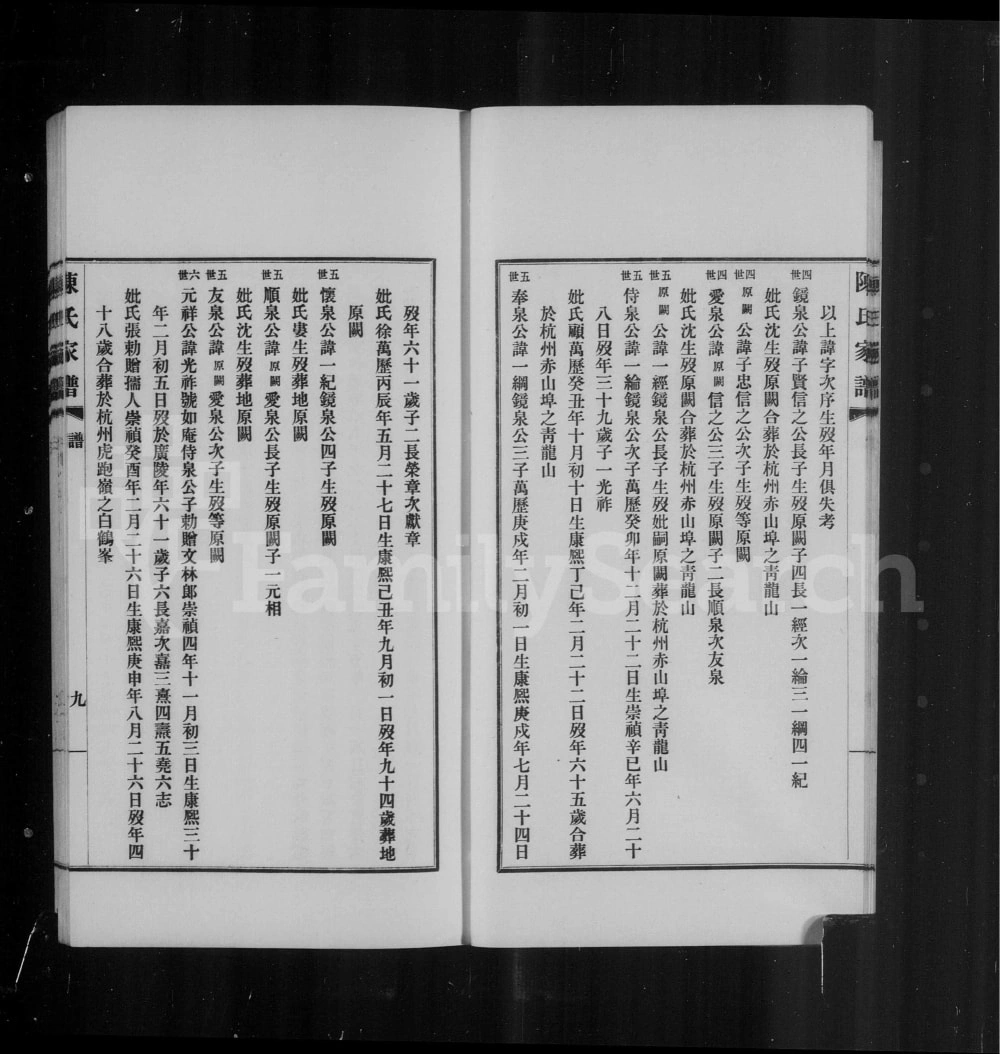 陳氏家譜
以上諱字次序生歿年月俱失考
四世 鏡泉公諱子賢信之公長子生歿原闕子四長一經次一綸三一綱四一紀
妣氏沈生歿原闕合葬於杭州赤山埠之青龍山
四世 原闕 公諱子忠信之公次子生歿等原闕
四世 愛泉公諱 原闕 信之公三子生歿原闕子二長順泉次友泉
妣氏沈生歿原闕合葬於杭州赤山埠之青龍山
五世 原闕 公諱一經鏡泉公長子生歿妣嗣原闕葬於杭州赤山埠之青龍山
五世 侍泉公諱一綸鏡泉公次子萬歷癸卯年十二月二十二日生崇禎辛巳年六月二十
八日歿年三十九歲子一光祚
妣氏顧萬歷癸丑年十月初十日生康熙丁己年二月二十二日歿年六十五歲合葬
於杭州赤山埠之青龍山
五世 奉泉公諱一綱鏡泉公三子萬歷庚戍年二月初一日生康熙庚戍年七月二十四日
歿年六十一歲子二長榮章次獻章
妣氏徐萬歷丙辰年五月二十七日生康熙己丑年九月初一日歿年九十四歲葬地
原闕
五世 懷泉公諱一紀鏡泉公四子生歿原闕
妣氏婁生歿葬地原闕
五世 順泉公諱 原闕 愛泉公長子生歿原闕子一元相
妣氏沈生歿葬地原闕
五世 友泉公諱 原闕 愛泉公次子生歿等原闕
六世 元祥公諱光祚號如庵侍泉公子勅贈文林郎崇禎四年十一月初三日生康熙三十
年二月初五日歿於廣陵年六十一歲子六長嘉次嘉三熹四燾五堯六志
妣氏張勅贈孺人崇禎癸酉年二月二十六日生康熙庚申年八月二十六日歿年四
十八歲合葬於杭州虎跑嶺之白鶴峯
陳氏家譜
譜
九
FamilySearch